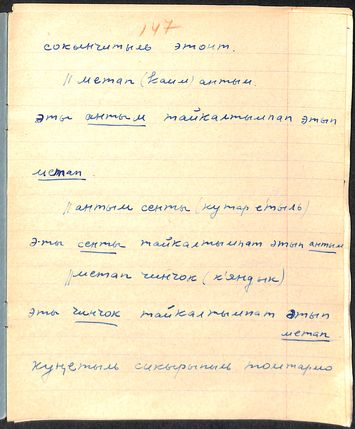 147
сокынчитыль этоит.
// метап (каим) антым.
эты антым тайкалтымпап этып
метап.
// антым сенты (кутар е́тыль)
э-ты сенты тайкалтымпат этып антым
// метап чинчок (к'яндык)
эты чинчок тайкалтымпат этып
метап
куңетыль сикырыпыль томтармо